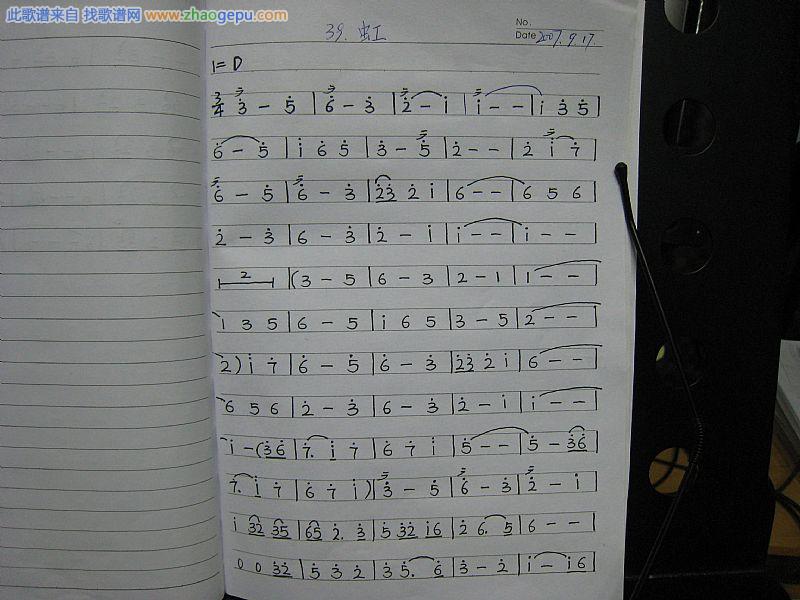 此歌谱来自 找歌谱网 www.zhaogepu.com
39. 虹
No.
Date 2007. 9. 17.
1= D
3/4 3 - 5 | 6 - 3 | 2 - i | i - - | i 3 5 |
6 - 5 | i 6 5 | 3 - 5 | 2 - - | 2 i 7 |
6 - 5 | 6 - 3 | 23 2 i | 6 - - | 6 5 6 |
2 - 3 | 6 - 3 | 2 - i | i - - | i - - |
2 | (3 - 5 | 6 - 3 | 2 - 1 | 1 - - |
1 3 5 | 6 - 5 | i 6 5 | 3 - 5 | 2 - - |
2) i 7 | 6 - 5 | 6 - 3 | 23 2 i | 6 - - |
6 5 6 | 2 - 3 | 6 - 3 | 2 - i | i - - |
i - (36 | 7. i 7 | 6 7 i | 5 - - | 5 - 36 |
7. i 7 | 6 7 i) | 3 - 5 | 6 - 3 | 2 - i |
i 32 35 | 65 2. 3 | 5 32 i6 | 2 6. 5 | 6 - - |
0 0 32 | 5 3 2 | 3 5. 6 | 3 - 2 | i - i6 |